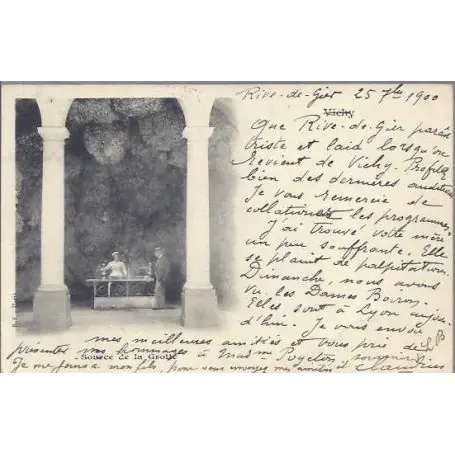 Rive-de-Gier 25 7bre 1900
Vichy
Que Rive-de-Gier paraît
triste et laid lorsqu'on
revient de Vichy. Profitez
bien des dernières auditions
Je vous remercie de
collationner les programmes.
J'ai trouvé votre mère
un peu souffrante. Elle
se plaint de palpitations.
Dimanche, nous avons
vu les Dames Boiron.
Elles sont à Lyon aujour-
d'hui. Je vous envoie
mes meilleures amitiés et vous prie de
présenter mes hommages à Madame
Source de la Grotte
Je me joins à mon fils, pour vous envoyer mes amitiés et